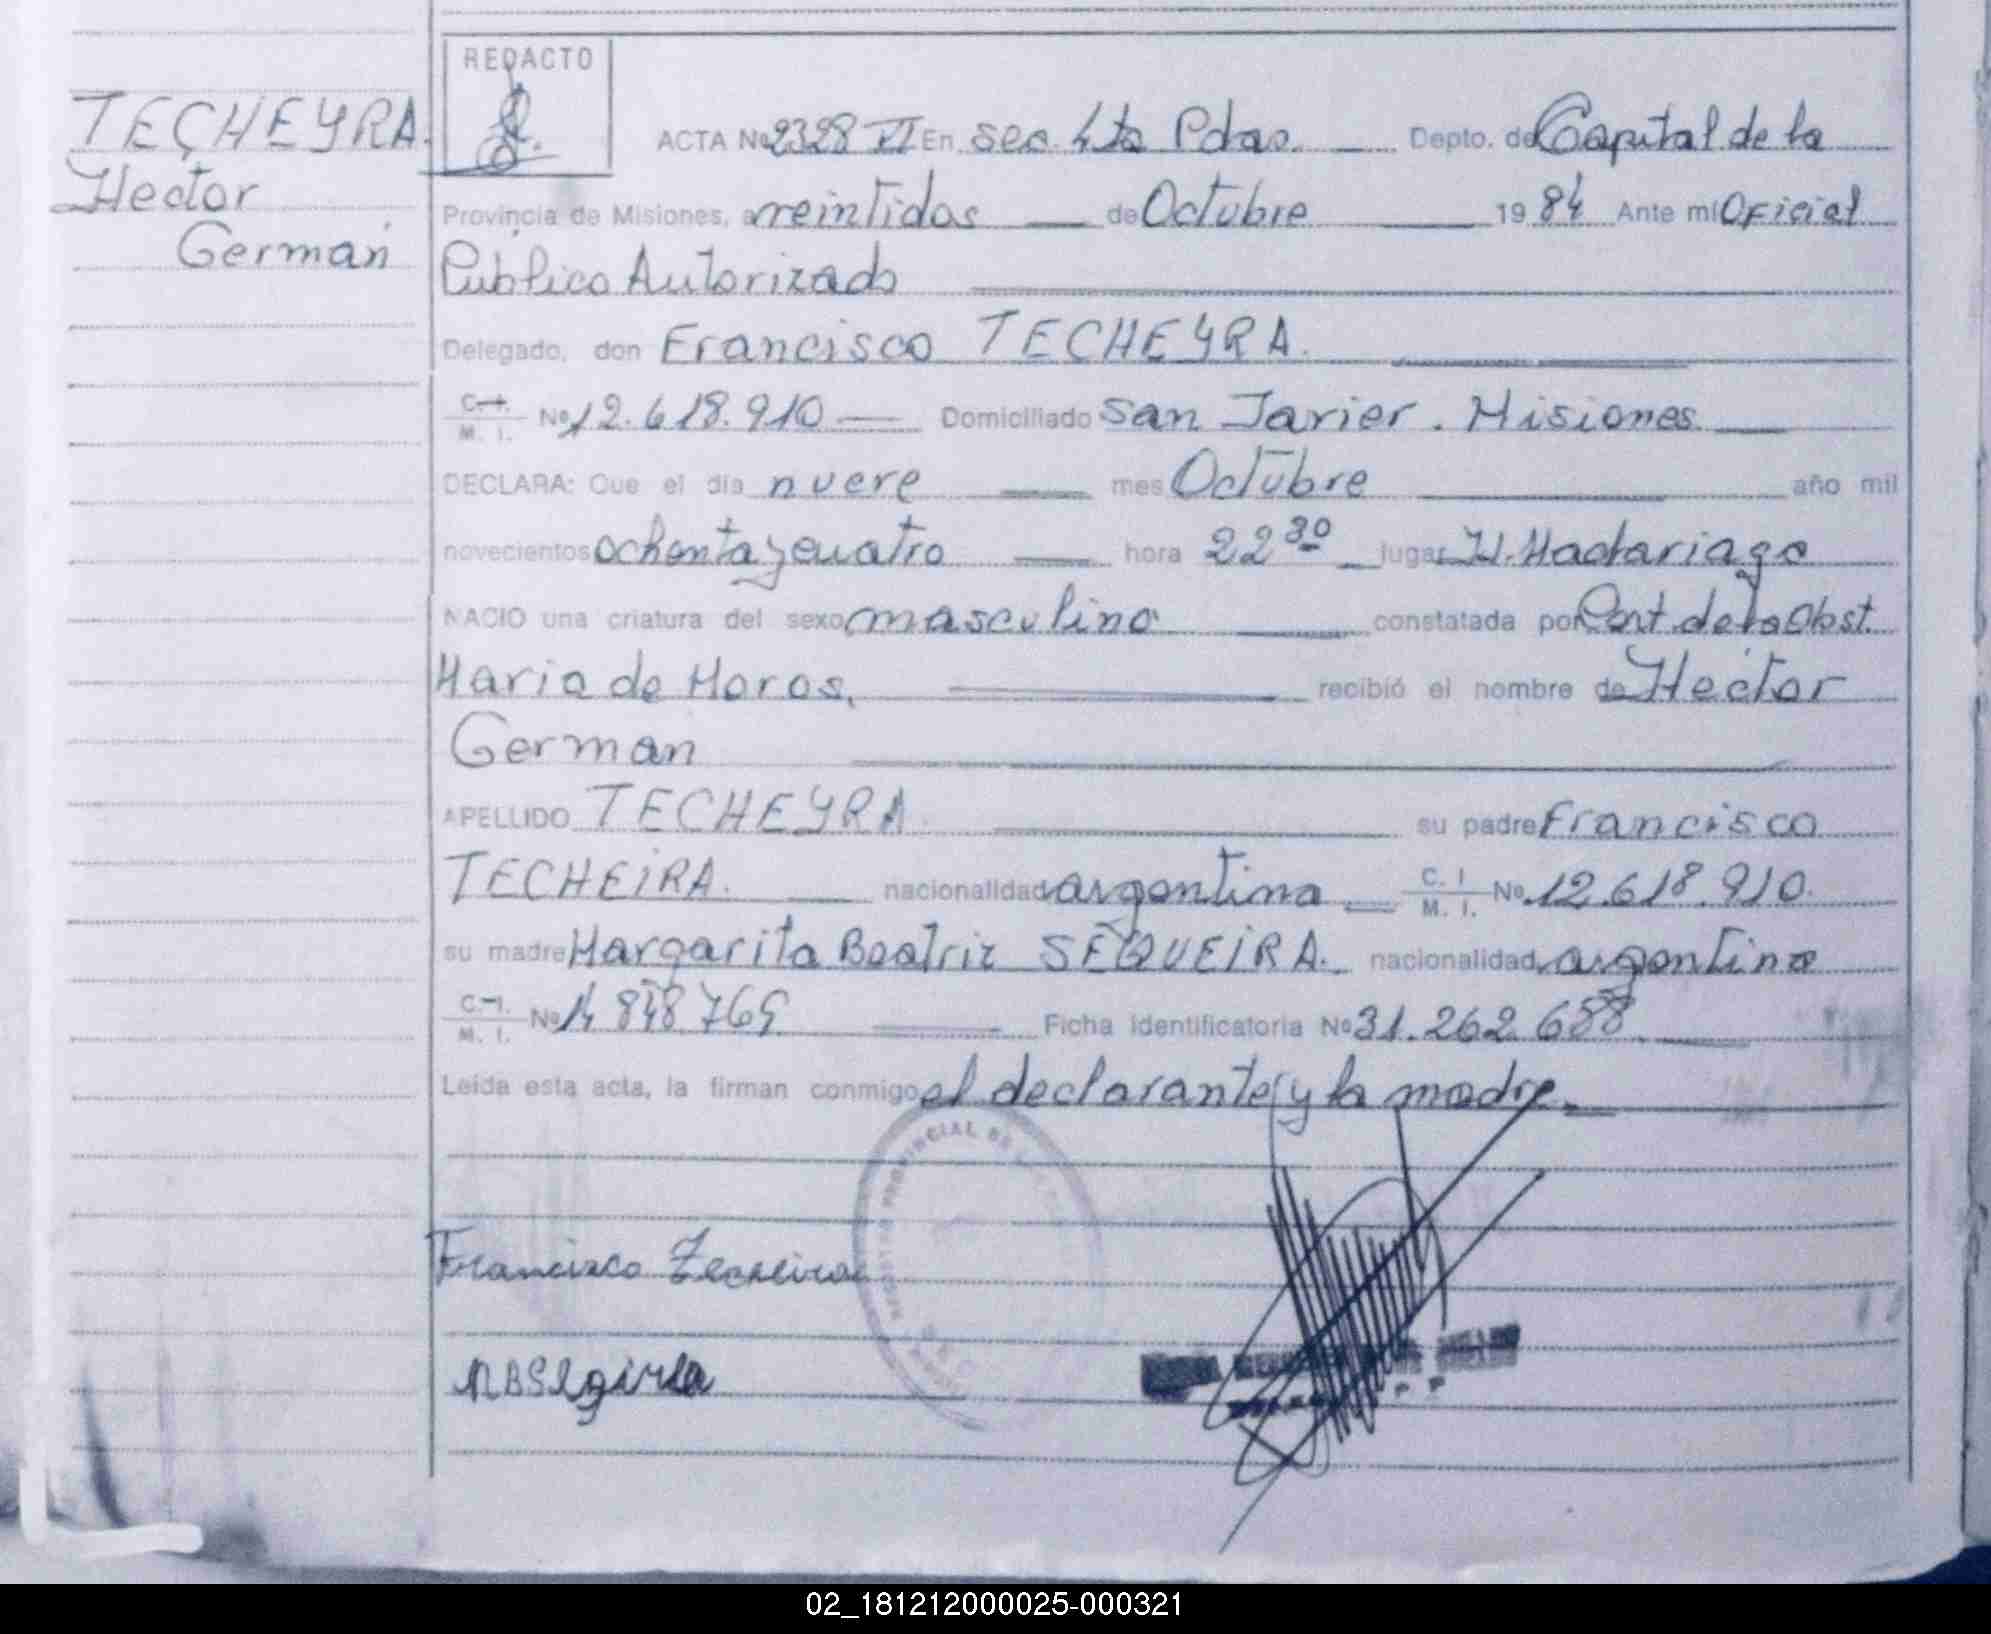 REDACTO
TECHEYRA.
Hector
German
ACTA Nº 2328 VI En sec. 4ta Pdas. Depto. de Capital de la
Provincia de Misiones, a veintidos de Octubre 19 84 Ante mí Oficial
Público Autorizado
Delegado, don Francisco TECHEYRA.
C. I. M. I. Nº 12.618.910 Domiciliado San Javier. Misiones.
DECLARA: Que el día nueve mes Octubre año mil
novecientos ochenta y cuatro hora 22 30 lugar H. Madariaga
NACIO una criatura del sexo masculino constatada por Cert. de la Obst.
Maria de Moros, recibió el nombre de Hector
German
APELLIDO TECHEYRA su padre Francisco
TECHEIRA. nacionalidad argentina C. I. M. I. Nº 12.618.910.
su madre Margarita Beatriz SEQUEIRA. nacionalidad argentina
C. I. M. I. Nº 14.848.765 Ficha Identificatoria Nº 31.262.688
Leída esta acta, la firman conmigo el declarante y la madre.
REGISTRO PROVINCIAL DE
Francisco Techeira
02_181212000025-000321